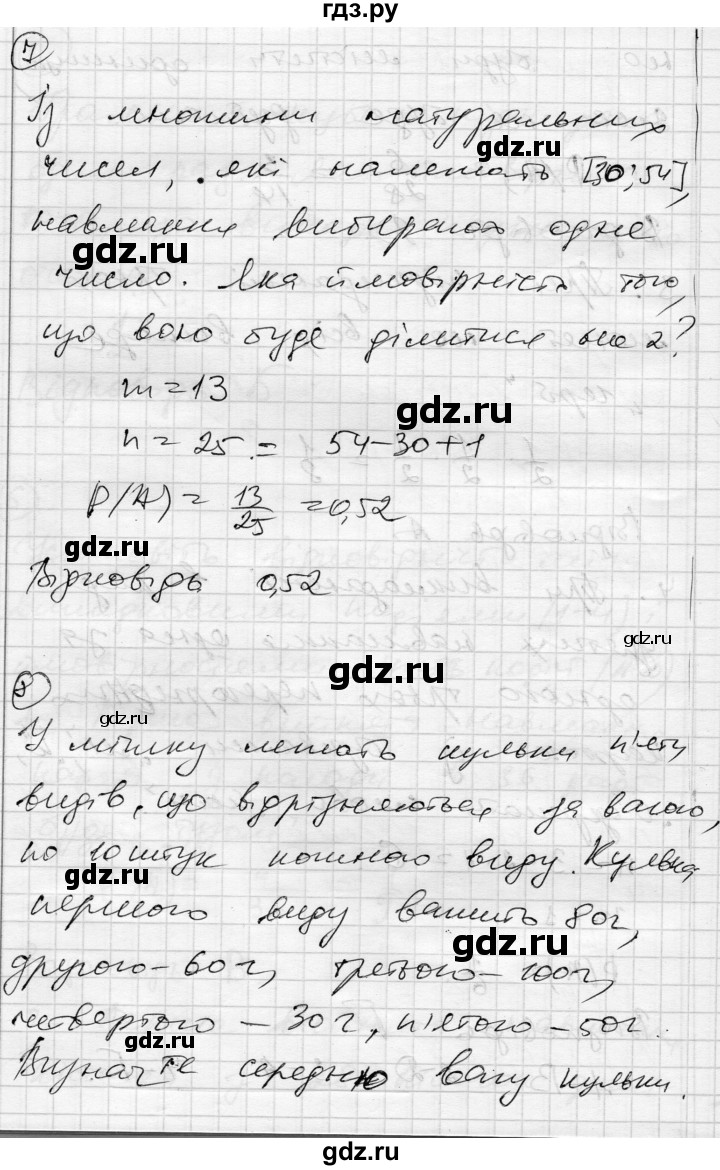 гдз.ру
7
Із множини натуральних
чисел, які належать [30; 54],
gdz.ru
навмання вибирають одне
gdz.ru
число. Яка ймовірність того,
що воно буде ділитися на 2?
gdz.ru
m = 13
gdz.ru
n = 25 = 54-30+1
P(A) = 13/25 = 0,52
gdz.ru
gdz.ru
Відповідь 0,52
gdz.ru
gdz.ru
8
gdz.ru
У мішку лежать кульки п'яти
gdz.ru
видів, що відрізняються за вагою,
gdz.ru
по 10 штук кожного виду. Кулька
gdz.ru
першого виду важить 80г,
gdz.ru
другого - 60г, третього - 100г,
gdz.ru
четвертого - 30г, п'ятого - 50г.
gdz.ru
Визначте середню вагу кульки.
gdz.ru
gdz.ru